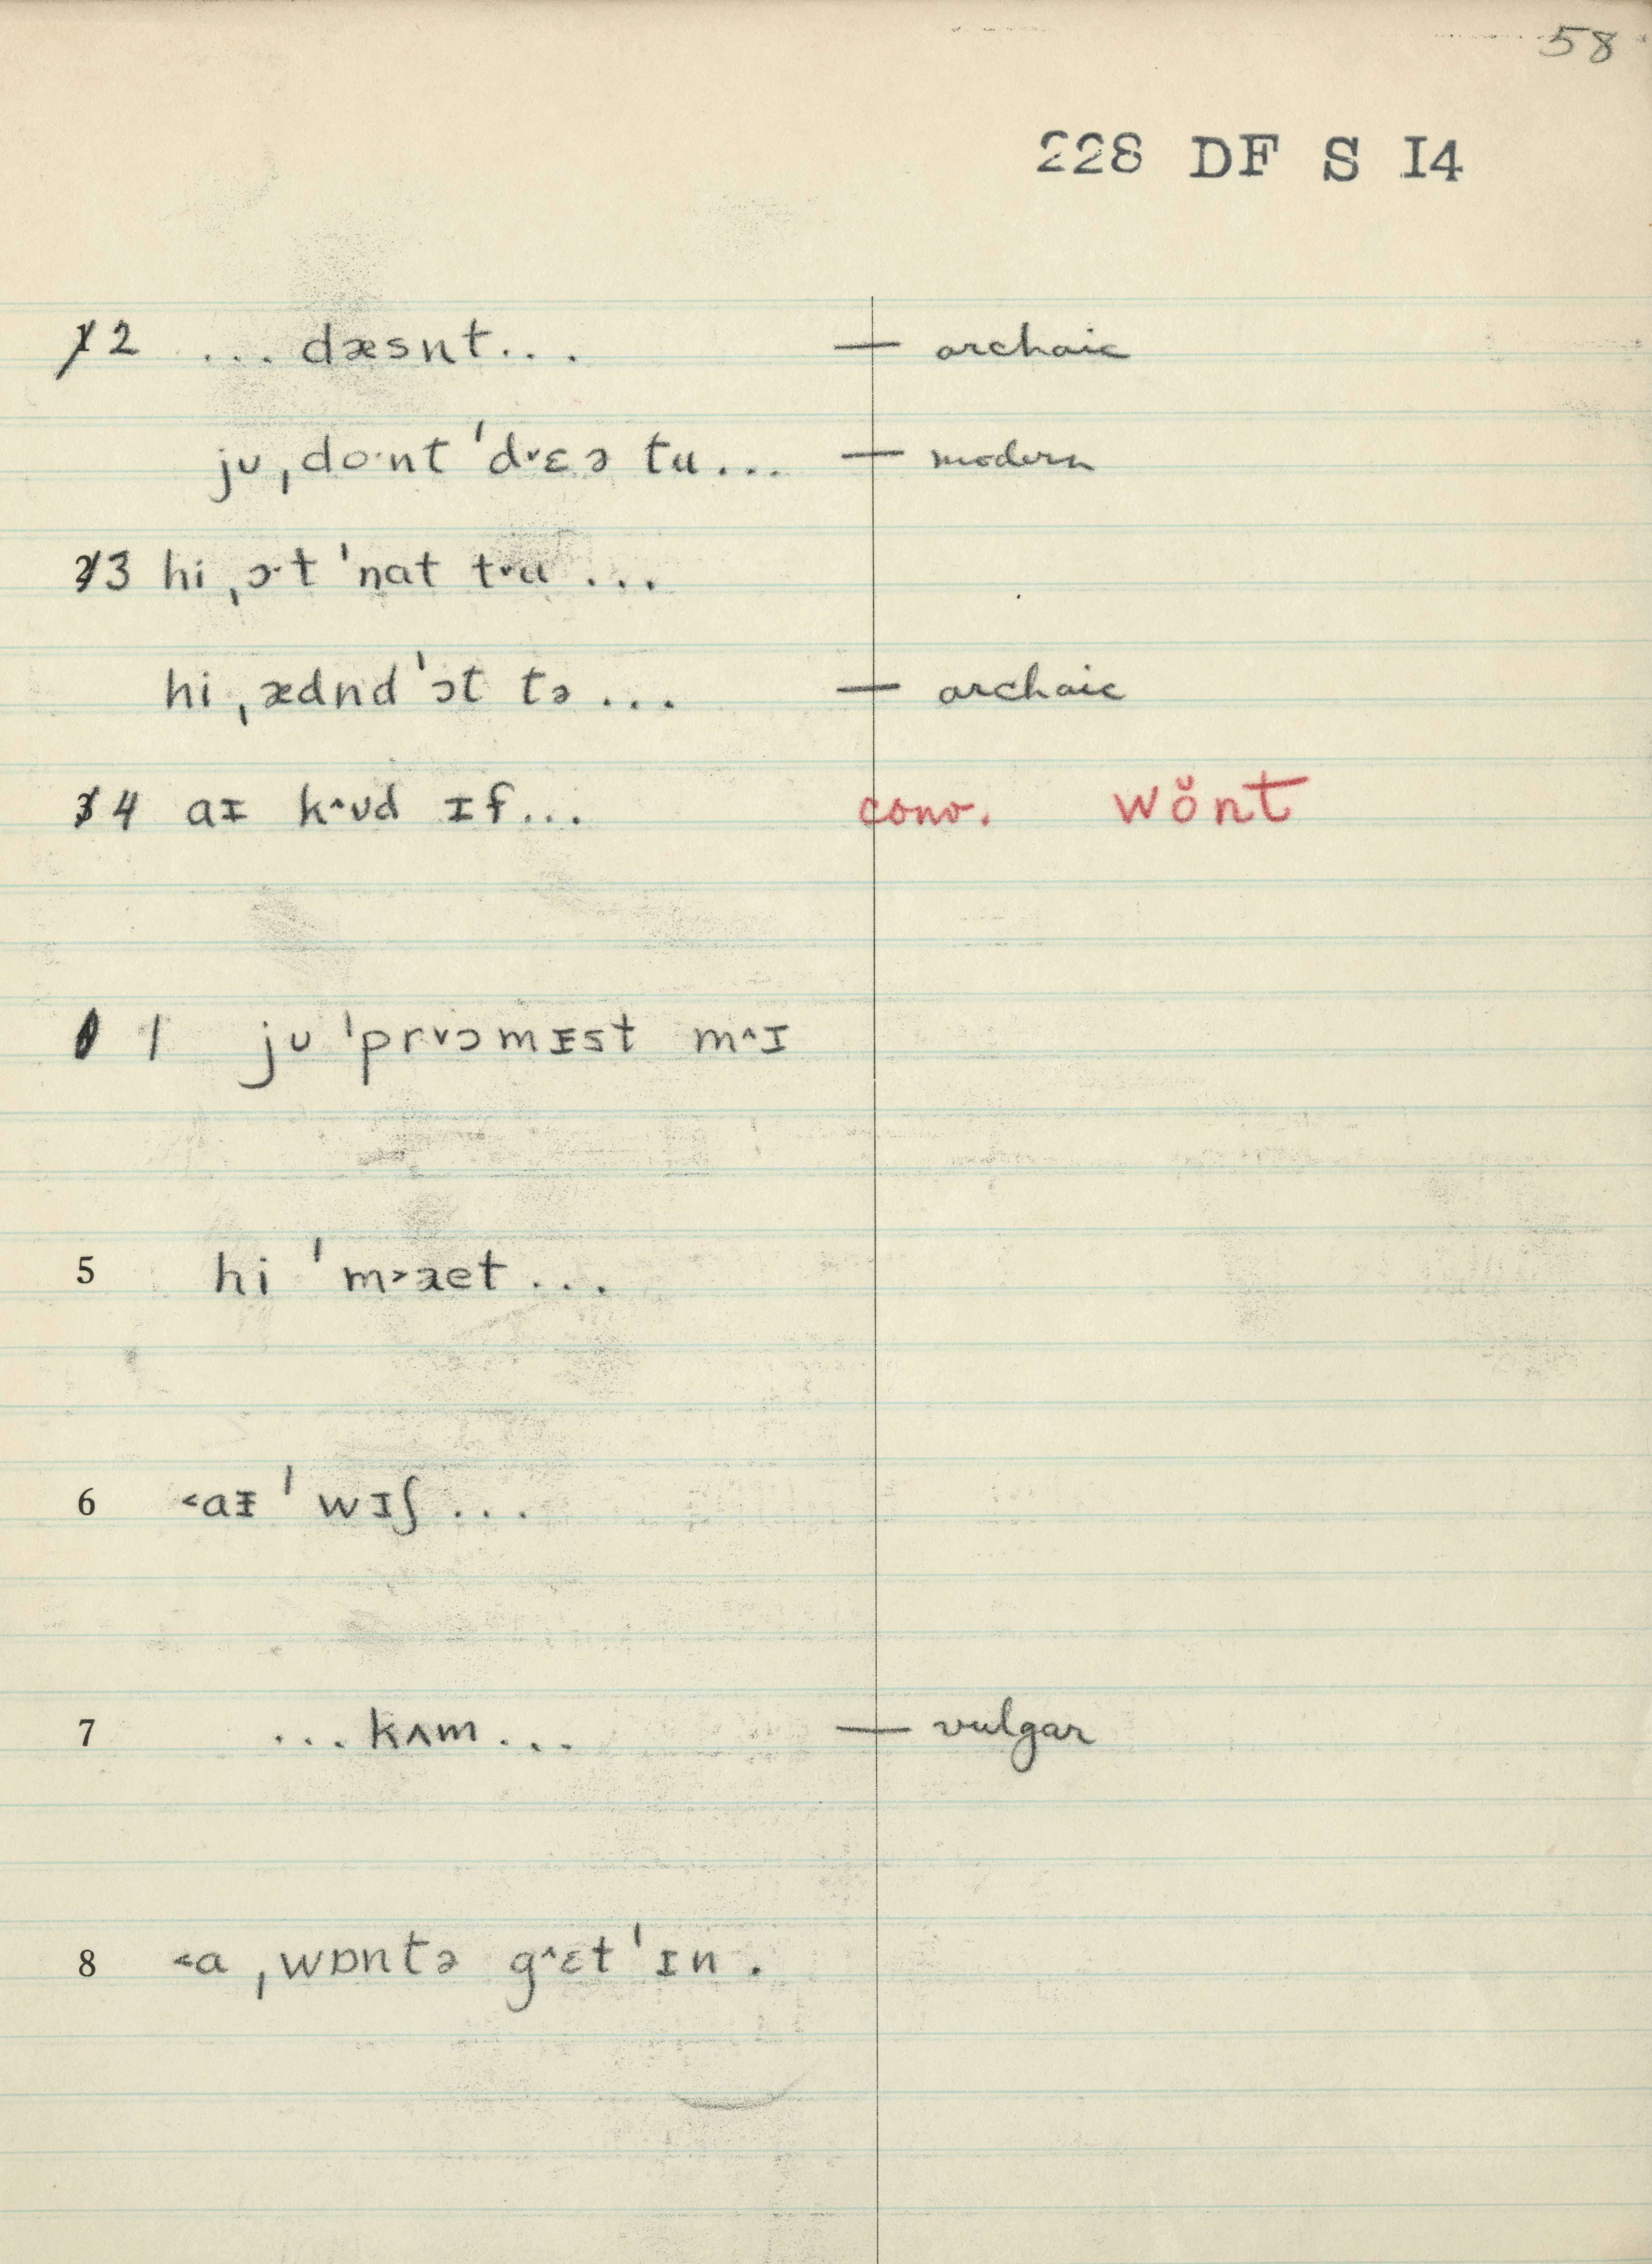 58
228 DF S I4
2 ... dæsnt... — archaic
jʊ ˌdo·nt ˈd˅ɛə tu... — modern
3 hi ˌɔ·t ˈnat t˅u ...
hi ˌædnd ˈɔt tə ... — archaic
4 aɪ k^ʊd ɪf... conv. wŏnt
1 jʊ ˈpr˅ɔmᵻst m^ɪ
5 hi ˈm˃æet ...
6 ˂aᵻ ˈwɪʃ ...
7 ... kʌm ... — vulgar
8 ˂a ˌwɒntə g^ɛt ˈɪn .